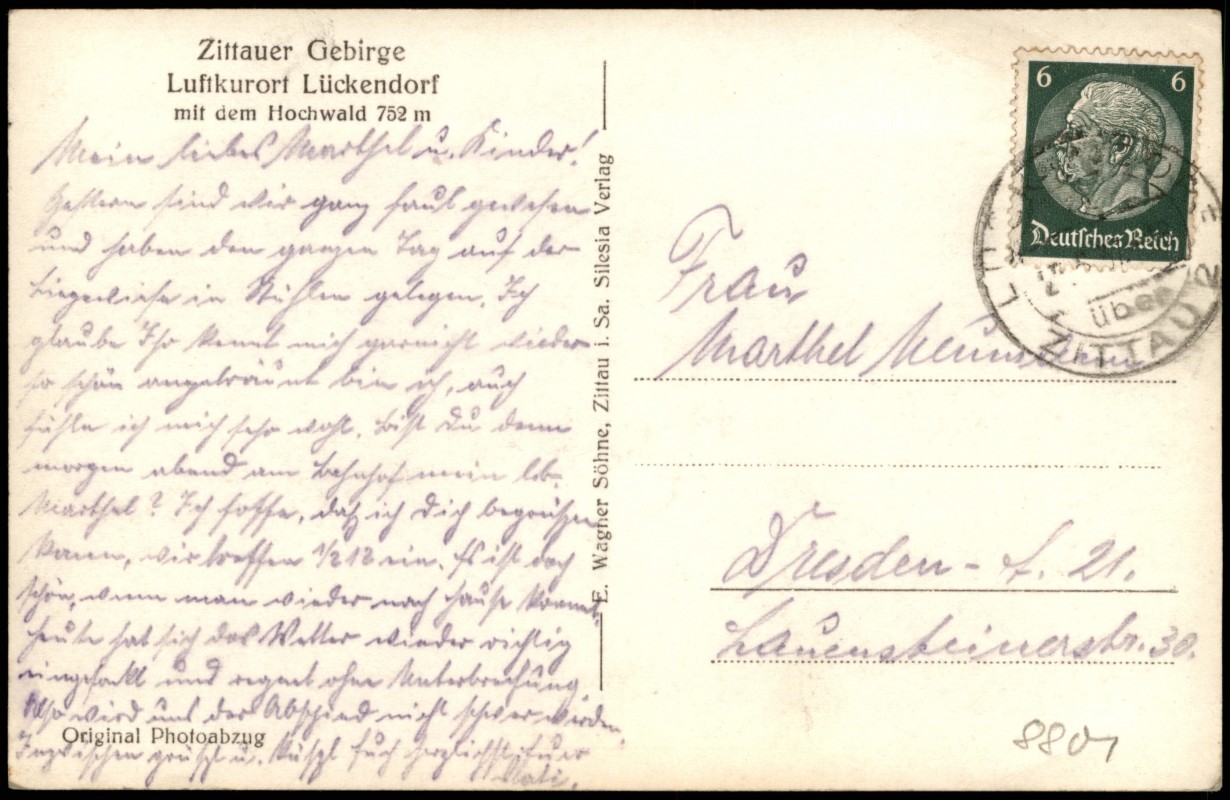 Zittauer Gebirge
Luftkurort Lückendorf
mit dem Hochwald 752 m
Mein liebes Marthel u. Kinder!
Gestern sind wir ganz faul gewesen
und haben den ganzen Tag auf der
Liegewiese in Stühlen gelegen. Ich
glaube Ihr kennt mich garnicht wieder
so schön angebräunt bin ich, auch
fühle ich mich sehr wohl. Bist Du denn
morgen abend am Bahnhof mein lb.
Marthel? Ich hoffe, daß ich Dich begrüßen
kann, wir treffen 1/2 12 ein. Es ist doch
schön, wenn man wieder nach Hause kommt.
Heute hat sich das Wetter wieder richtig
eingehakt und regnet ohne Unterbrechung.
Also wird uns der Abschied nicht schwer werden.
Inzwischen grüßt u. küßt Euch herzlichst Euer
Vati.
Original Photoabzug
E. Wagner Söhne, Zittau i. Sa. Silesia Verlag
6 6
Deutsches Reich
über
ZITTAU 2
Frau
Marthel
Dresden - A. 21.
Lauensteinerstr. 30.
8801